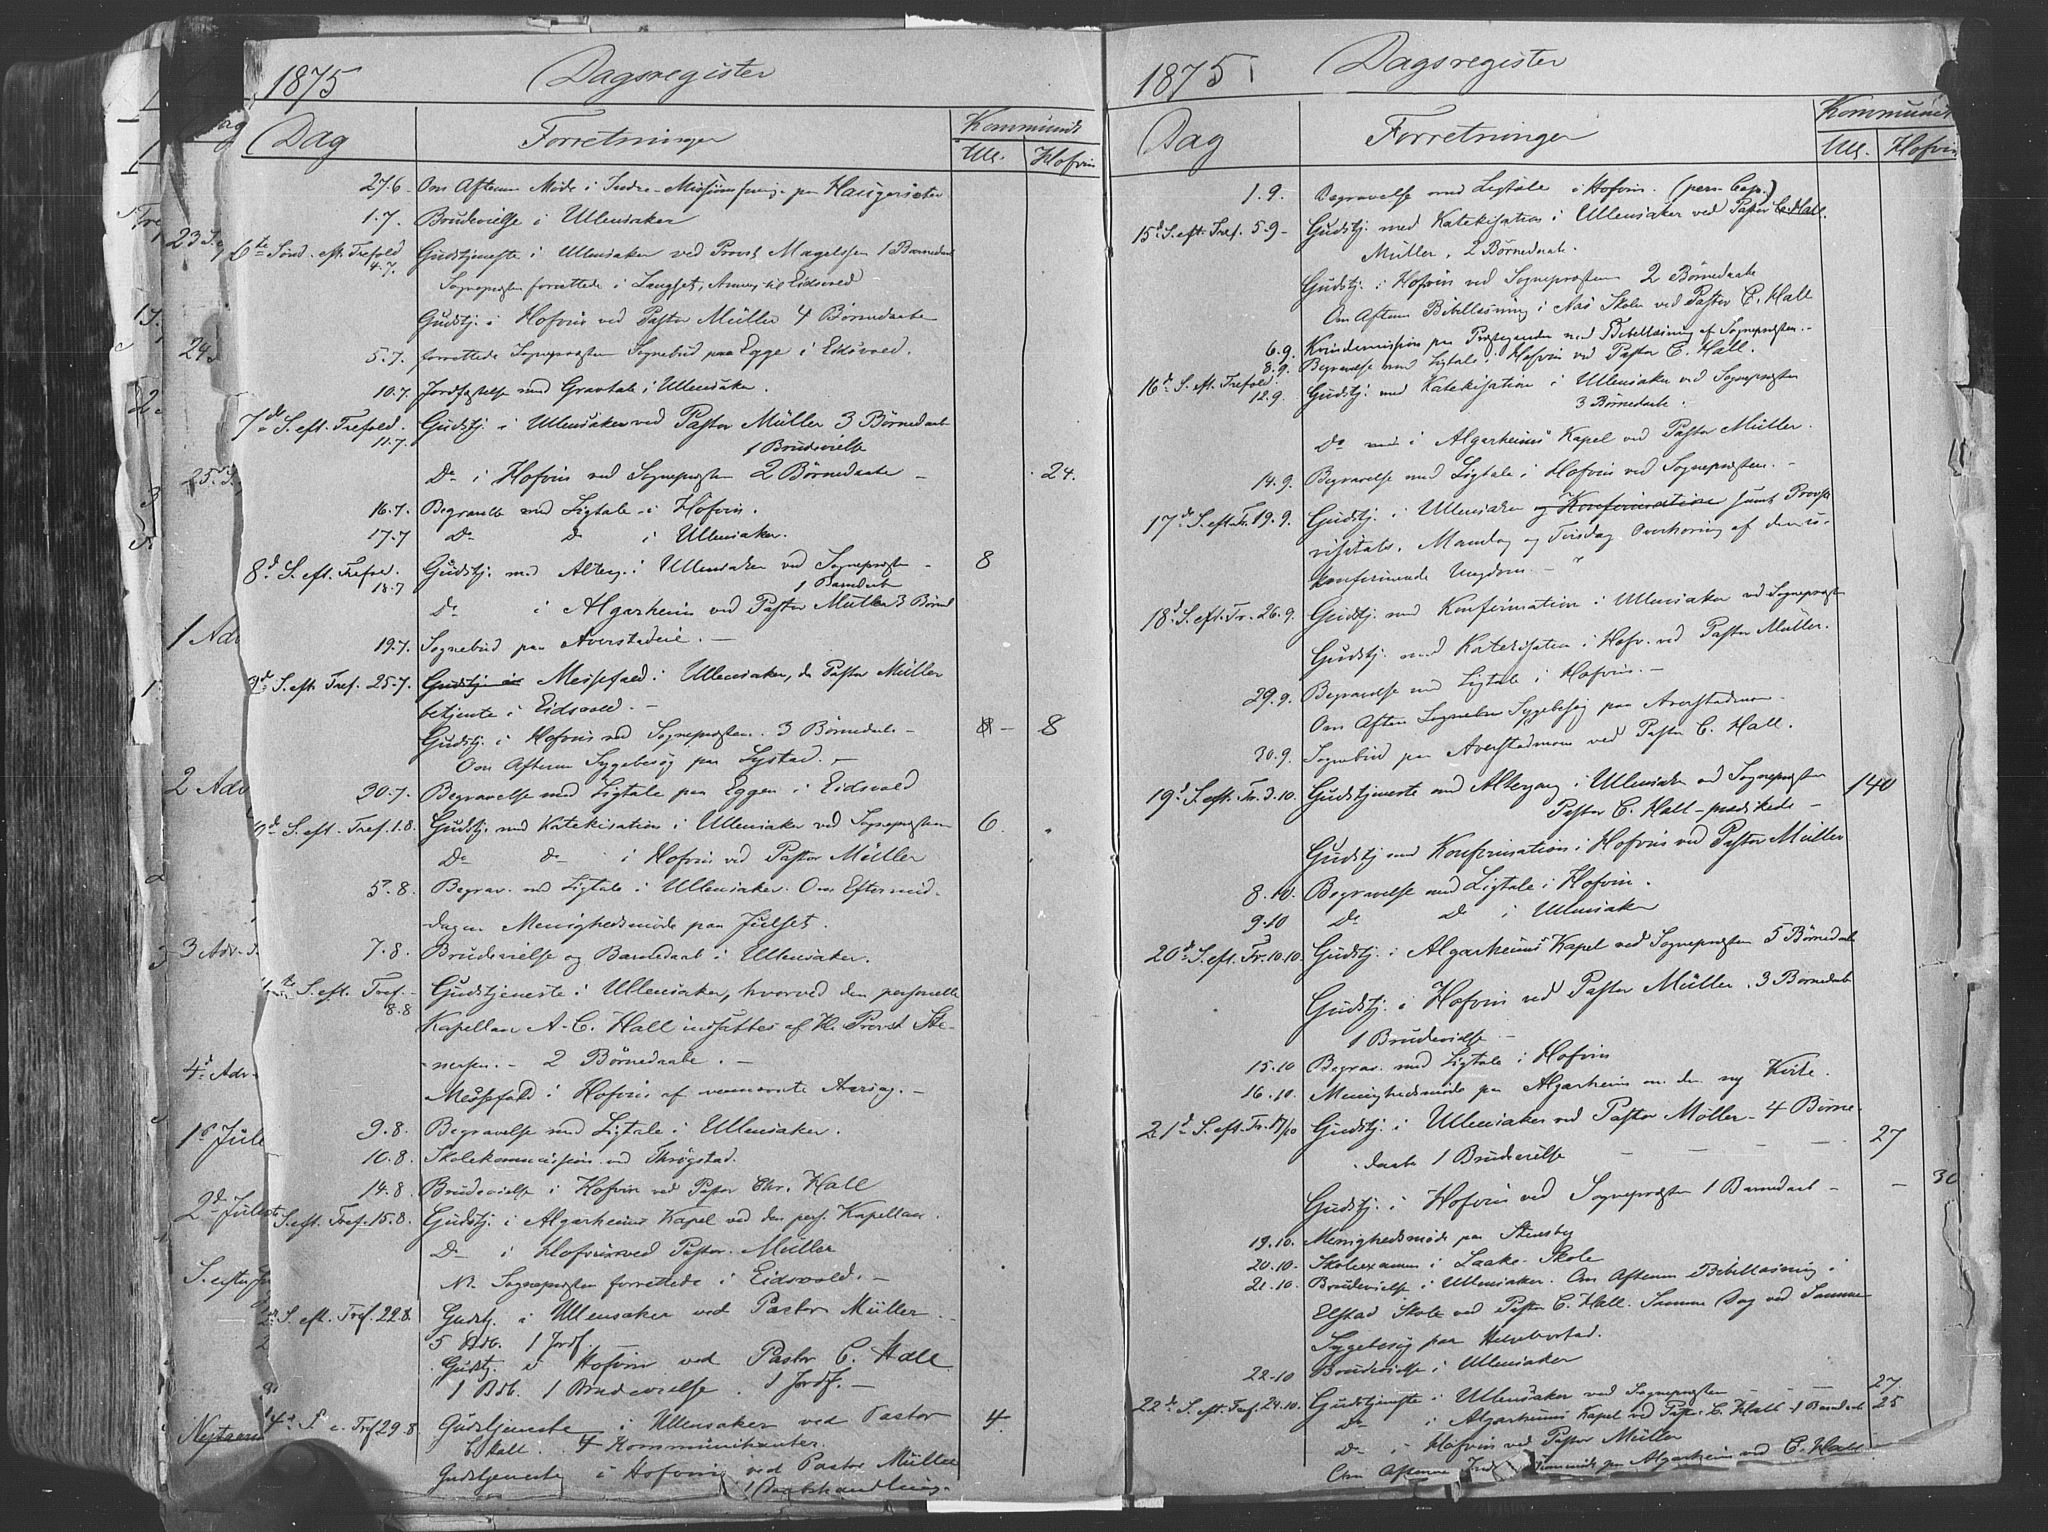 1875 Dagsregister
Dag Forretninger Kommunik
Ull. Hofvin
27.6 Om Aftenen Møde i Indre-Missions paa Haugerseter
1.7. Brudevielse i Ullensaker
6te Sønd. eft. Trefold 4.7. Gudstjeneste i Ullensaker ved Provst Magelssen 1 Barnedaab
Sognepræsten forrettede i Langset, Annex til Eidsvold
Gudstj. i Hofvin ved Pastor Müller 4 Børnedaabe
5.7. forrettede Sognepræsten Sognebud paa Egge i Eidsvold.
10.7. Jordfæstelse med Gravtale i Ullensaker.
7de S. eft. Trefold. 11.7. Gudstj. i Ullensaker ved Pastor Müller 3 Børnedaab
1 Brudevielse
Do i Hofvin ved Sognepræsten 2 Børnedaabe – 24.
16.7. Begravelse med Ligtale i Hofvin.
17.7 Do Do i Ullensaker.
8d S. eft. Trefol. 18.7 Gudstj. med Alterg. i Ullensaker ved Sognepræsten – 8
1 Barnedaab
Do i Algarheim ved Pastor Müller 3 Børned
19.7. Sognebud paa Averstadeie. –
9d S. eft. Tref. 25.7. Gudstj. i Messefald i Ullensaker, da Pastor Müller
betjente i Eidsvold. –
Gudstj. i Hofvin ved Sognepræsten. 3 Børnedaabe – 8
Om Aftenen Sygebesøg paa Lystad. –
30.7. Begravelse med Ligtale paa Eggen i Eidsvold
S. eft. Tref. 1.8. Gudstj. med Katekisation i Ullensaker ved Sognepræsten 6.
Do do i Hofvin ved Pastor Müller
5.8. Begrav. med Ligtale i Ullensaker. Om Eftermid-
dagen Menighedsmøde paa Julset.
7.8. Brudevielse og Barnedaab i Ullensaker.
S. eft. Tref. 8.8 Gudstjeneste i Ullensaker, hvorved den personelle
Kapellan A. C. Hall indsattes af Hr. Provst Ste-
nersen. – 2 Børnedaabe. –
Messefald i Hofvin af nævnte Aarsag. –
9.8. Begravelse med Ligtale i Ullensaker.
10.8. Skolekommission ved Skrøgstad.
14.8. Brudevielse i Hofvin ved Pastor Chr. Hall
S. eft. Tref. 15.8. Gudstj. i Algarheims Kapel ved den pers. Kapellan.
Do i Hofvin ved Pastor. Müller
NB. Sognepræsten forrettede i Eidsvold. –
S. eft. Tref. 22.8. Gudstj. i Ullensaker ved Pastor Müller
5 Bdb. 1 Jordf.
Gudstj. i Hofvin ved Pastor C. Hall
1 Bdb. 1 Brudevielse. 1 Jordf. –
14d S. e. Tref 29.8. Gudstjeneste i Ullensaker ved Pastor 4.
C. Hall. 4 Kommunikanter.
Gudstjeneste i Hofvin ved Pastor Müller
1 Daabshandling.
1875 Dagsregister
Dag Forretninger Kommunik
Ull. Hofvin
1.9. Begravelse med Ligtale i Hofvin. (pers. Cap.)
15d S. eft. Tref. 5.9 – Gudstj. med Katekisation i Ullensaker ved Pastor C. Hall.
Müller. 2 Børnedaabe.
Gudstj. i Hofvin ved Sognepræsten 2 Børnedaabe
Om Aftenen Bibellæsning i Aas Skole ved Pastor C. Hall
6.9. Kvindemission paa Præstegaarden med Bibellæsning af Sognepræsten. –
8.9. Begravelse med Ligtale i Hofvin ved Pastor C. Hall.
16d S. eft. Trefold. 12.9. Gudstj. med Katekisation i Ullensaker ved Sognepræsten
3 Børnedaabe.
Do i Algarheims Kapel ved Pastor Müller.
14.9. Begravelse med Ligtale i Hofvin ved Sognepræsten. –
17d S. eft. Tr. 19.9. Gudstj. i Ullensaker og Konfirmation samt Provste
visitats. Mandag og Tirsdag Overhøring af den u-
konfirmerede Ungdom. –
18d S. eft. Tr. 26.9. Gudstj. med Konfirmation i Ullensaker ved Sognepræsten
Gudstj. med Katekisation i Hofv. ved Pastor Müller.
29.9. Begravelse med Ligtale i Hofvin. –
Om Aften Sygebesøg paa Averstadmoen –
30.9. Sognebud paa Averstadmoen ved Pastor C. Hall.
19d S. eft. Tr. 3.10. Gudstjeneste med Altergang i Ullensaker ved Sognepræsten 140
Pastor C. Hall prædikede –
Gudstj. med Konfirmation i Hofvin ved Pastor Müller
8.10. Begravelse med Ligtale i Hofvin.
9.10 Do Do i Ullensaker
20d S. eft. Tr. 10.10. Gudstj. i Algarheims Kapel ved Sognepræsten 5 Børnedaab
Gudstj. i Hofvin ved Pastor Müller. 3 Børnedaab
1 Brudevielse –
15.10 Begrav. med Ligtale i Hofvin
16.10. Menighedsmøde paa Algarheim om den ny Kirke.
21d S. eft. Tr. 17/10 Gudstj. i Ullensaker ved Pastor Møller – 4 Børne-
daabe 1 Brudevielse – – – 27
Gudstj. i Hofvin ved Sognepræsten 1 Barnedaab – – 30
19.10. Menighedsmøde paa Stensby
20.10. Skoleexamen i Laake Skole
21.10. Brudevielse i Ullensaker. Om Aftenen Bibellæsning i
Elstad Skole ved Pastor C. Hall. Samme Dag ved Samme
Sygebesøg paa Helgebostad.
22.10 Brudevielse i Ullensaker
22d S. eft. Tref. 24.10. Gudstjeneste i Ullensaker ved Sognepræsten – – 27
Do i Algarheims Kapel ved Past. C. Hall – 1 Barnedaab 25
Do i Hofvin ved Pastor Müller
Om Aftenen paa Algarheim ved C. Hall